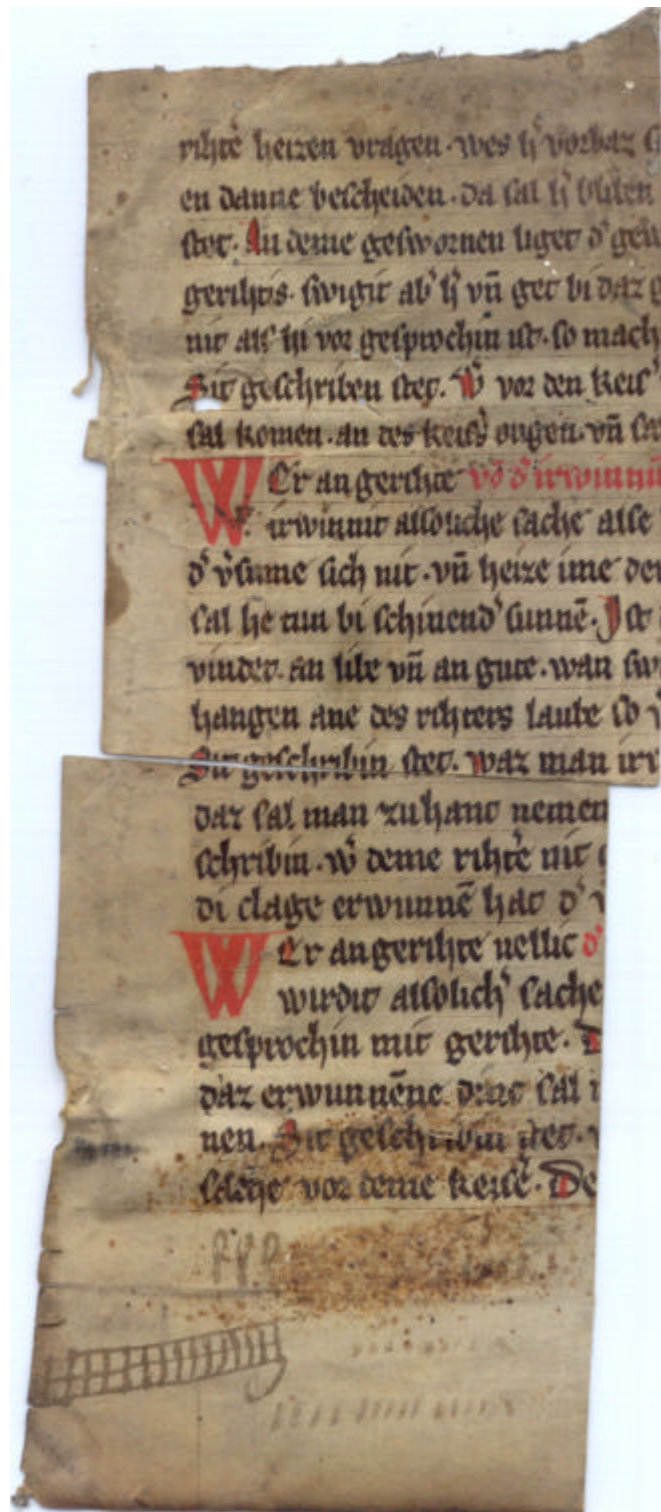 rihte heizen vragen · wes h̓ vorbaz
en danne bescheiden · da sal h̓ bliben
stet · An deme geswornen liget d̓
gerihtis · swigit ab̓ h̓ vn̄ get bi daz
nit als hi vor gesprochin ist · so mach
Sit geschriben stet · W̓ vor den keis̓
sal komen · an des keis̓ ougen · vn̄
WEr an gerihte vō d̓ irwinnū
irwinnit alsoliche sache alse
d̓ v̓sume sich nit · vn̄ heize ime
sal he tun bi schinend̓ sunnē · Ist
vindet · an libe vn̄ an gute · wan
hangen ane des rihters laube so
Sit geschribin stet · waz man
daz sal man zuhant nemen
schribin · w̓ deme rihte nit
di clage erwunnē hat d̓
WEr an gerihte vellic d̓
wirdit alsolich̓ sache
gesprochin mit gerihte ·
daz erwunnēne dinc sal
nen · Sit geschribin stet ·
sache vor deme keise · De